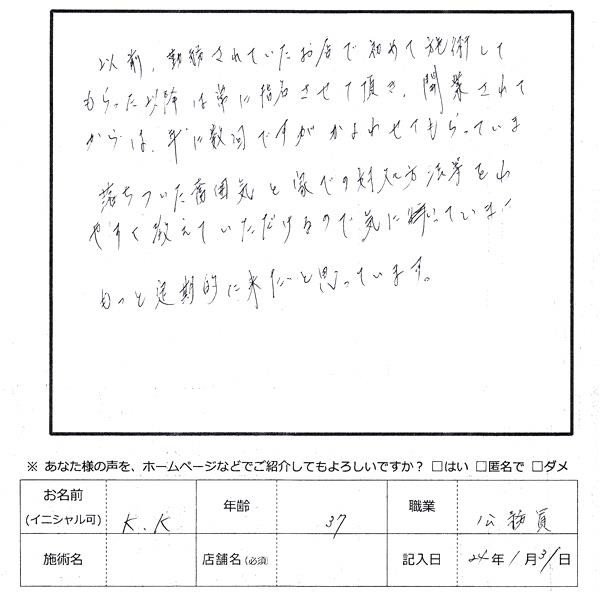 以前、勤務されていたお店で初めて施術して
もらった以降は常に指名させて頂き、開業されて
からは、年に数回ですがかよわせてもらっていま
落ちついた雰囲気と家での対処方法等をわ
やすく教えていただけるので気に入っていま
もっと定期的に来たいと思っています。
※ あなた様の声を、ホームページなどでご紹介してもよろしいですか? □はい □匿名で □ダメ
お名前
(イニシャル可) K.K 年齢 37 職業 公務員
施術名 店舗名(必須) 記入日 24年1月31日